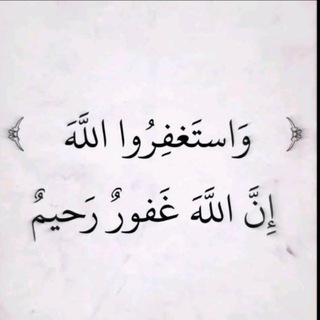 ﴿ وَاستَغفِرُوا اللَّهَ ﴾
إِنَّ اللَّهَ غَفورٌ رَحيمٌ